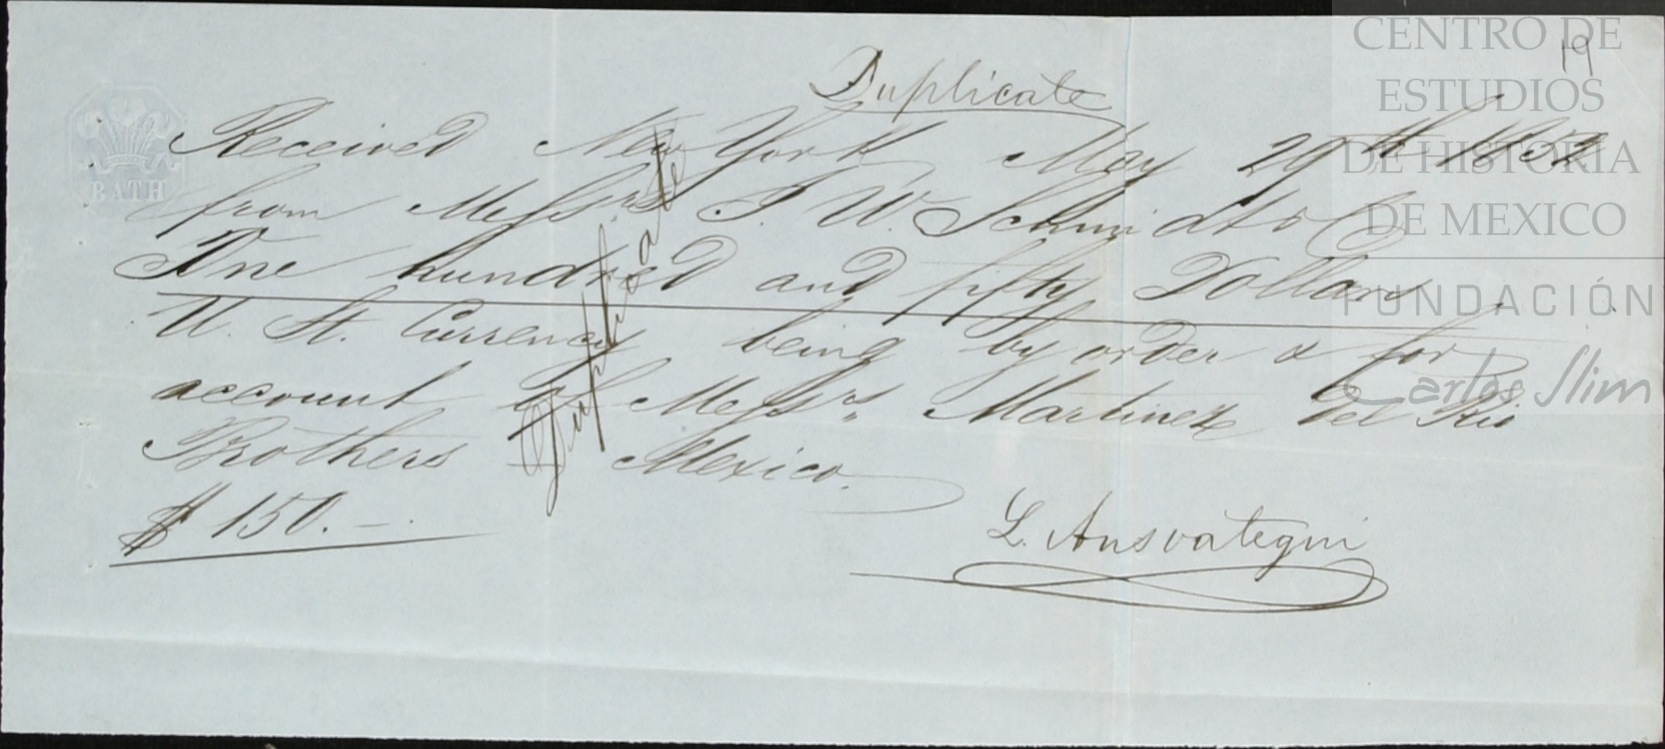 Duplicate
19
Received New York May 29th 1852
from Messrs. P. W. Schmidt & Co
One hundred and fifty Dollars
U. St. Currency being by order & for
account of Messrs. Martinez del Rio
Brothers of Mexico.
$ 150.-
L. Ansoategui
Duplicate
BATH
CENTRO DE
ESTUDIOS
DE HISTORIA
DE MEXICO
FUNDACIÓN
Carlos Slim